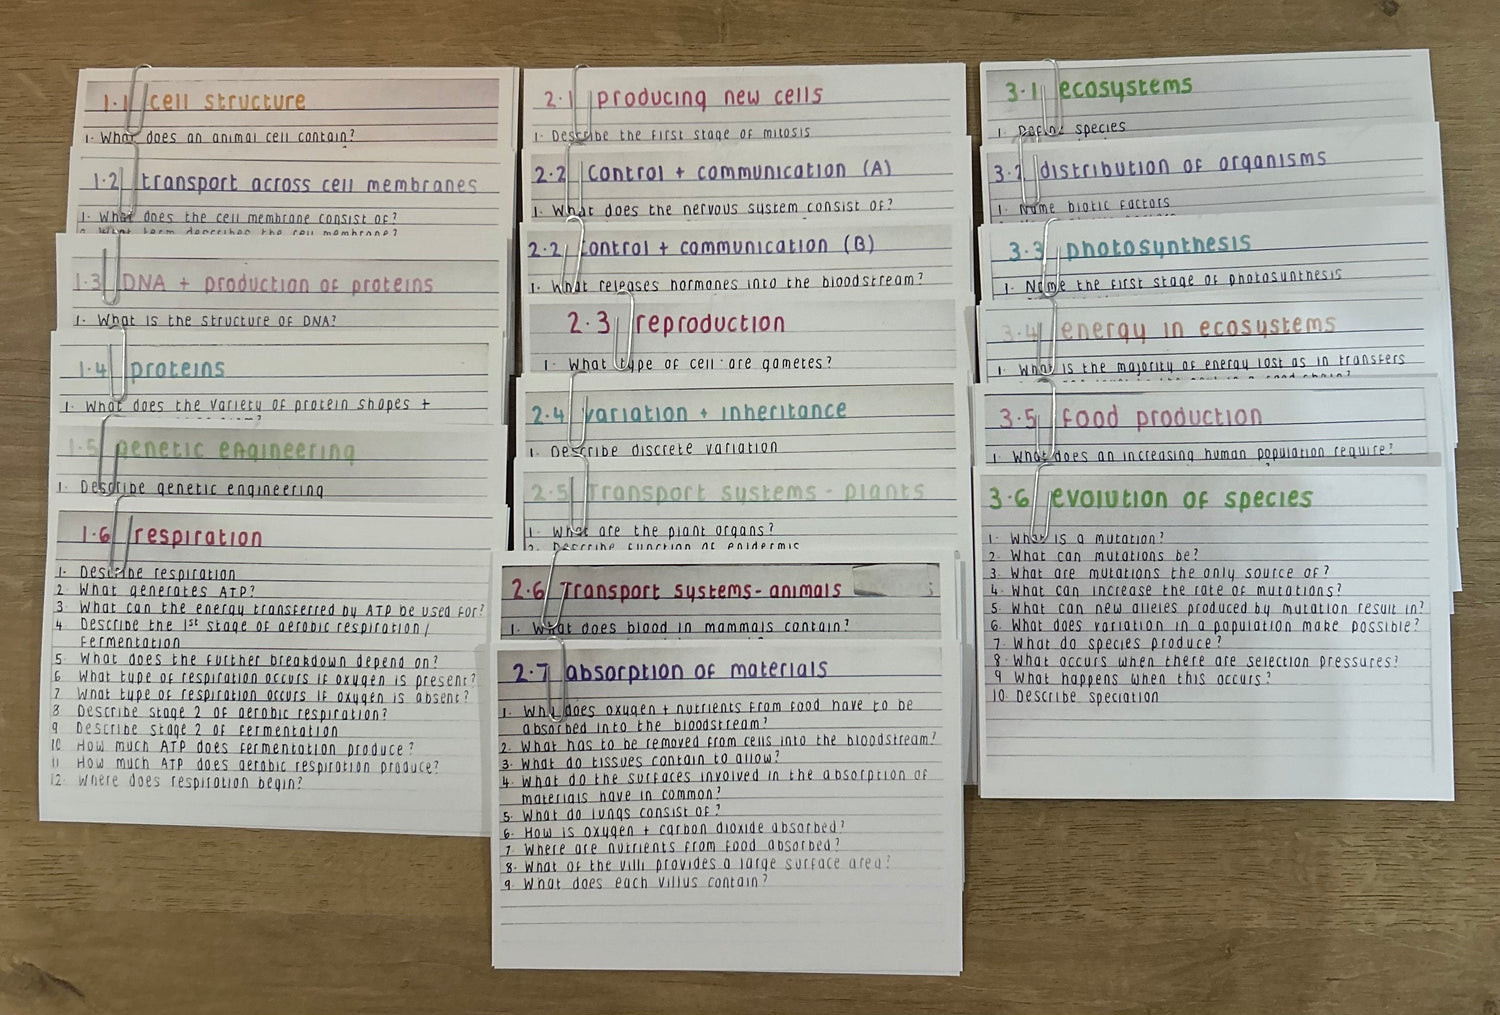 1.1 cell structure
1. What does an animal cell contain?
1.2 transport across cell membranes
1. What does the cell membrane consist of?
2. What term describes the cell membrane?
1.3 DNA + production of proteins
1. What is the structure of DNA?
1.4 proteins
1. What does the variety of protein shapes +
1.5 genetic engineering
1. Describe genetic engineering
1.6 respiration
1. Describe respiration
2. What generates ATP?
3. What can the energy transferred by ATP be used for?
4. Describe the 1st stage of aerobic respiration/
fermentation
5. What does the further breakdown depend on?
6 What type of respiration occurs if oxygen is present?
7 What type of respiration occurs if oxygen is absent?
8 Describe stage 2 of aerobic respiration?
9 Describe stage 2 of fermentation
10 How much ATP does fermentation produce?
11 How much ATP does aerobic respiration produce?
12. Where does respiration begin?
2.1 producing new cells
1. Describe the first stage of mitosis
2.2 Control + communication (A)
1. What does the nervous system consist of?
2.2 Control + communication (B)
1. What releases hormones into the bloodstream?
2.3 reproduction
1. What type of cell are gametes?
2.4 variation + inheritance
1. Describe discrete variation
2.5 Transport systems - plants
1. What are the plant organs?
2. Describe function of epidermis
2.6 Transport systems - animals
1. What does blood in mammals contain?
2.7 absorption of materials
1. Why does oxygen + nutrients from food have to be
absorbed into the bloodstream?
2. What has to be removed from cells into the bloodstream?
3. What do tissues contain to allow?
4. What do the surfaces involved in the absorption of
materials have in common?
5. What do lungs consist of?
6. How is oxygen + carbon dioxide absorbed?
7. Where are nutrients from food absorbed?
8. What of the villi provides a large surface area?
9. What does each villus contain?
3.1 ecosystems
1. Define species
3.2 distribution of organisms
1. Name biotic factors
3.3 photosynthesis
1. Name the first stage of photosynthesis
3.4 energy in ecosystems
1. What is the majority of energy lost as in transfers
3.5 food production
1. What does an increasing human population require?
3.6 evolution of species
1. What is a mutation?
2. What can mutations be?
3. What are mutations the only source of?
4. What can increase the rate of mutations?
5. What can new alleles produced by mutation result in?
6. What does variation in a population make possible?
7. What do species produce?
8. What occurs when there are selection pressures?
9 What happens when this occurs?
10. Describe speciation